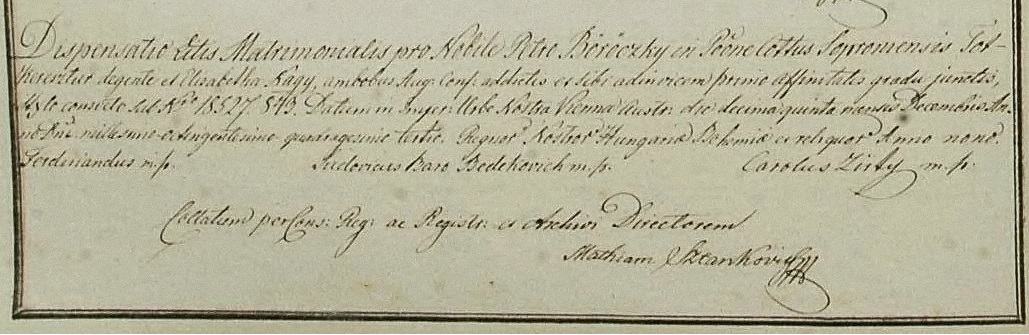 Dispensatio Litis Matrimonialis pro Nobile Petro Böröczky in Pöone Cottus Soproniensis Tót-
Keresztúr degente et Elisabetha Nagy, ambobus Aug. Conf. addictis et sibi adinvicem primo affinitatis gradu junctis,
stylo consveto sub Nro 18527. 843. Datum in Imper. Urbe Nostra Vienna Austr: die decima quinta mensis Decembris An-
no Dni millesimo octingentesimo quadragesimo tertio. Regnor. Nostror. Hungariae Bohemiae et reliquor. Anno nono.
Ferdinandus m. p. Ludovicus Baro Bedekovich m. p. Carolus m. p.
Collatum per Cons: Reg: ac Registr: et Archivi Directorem
Mathiam Sztankovics